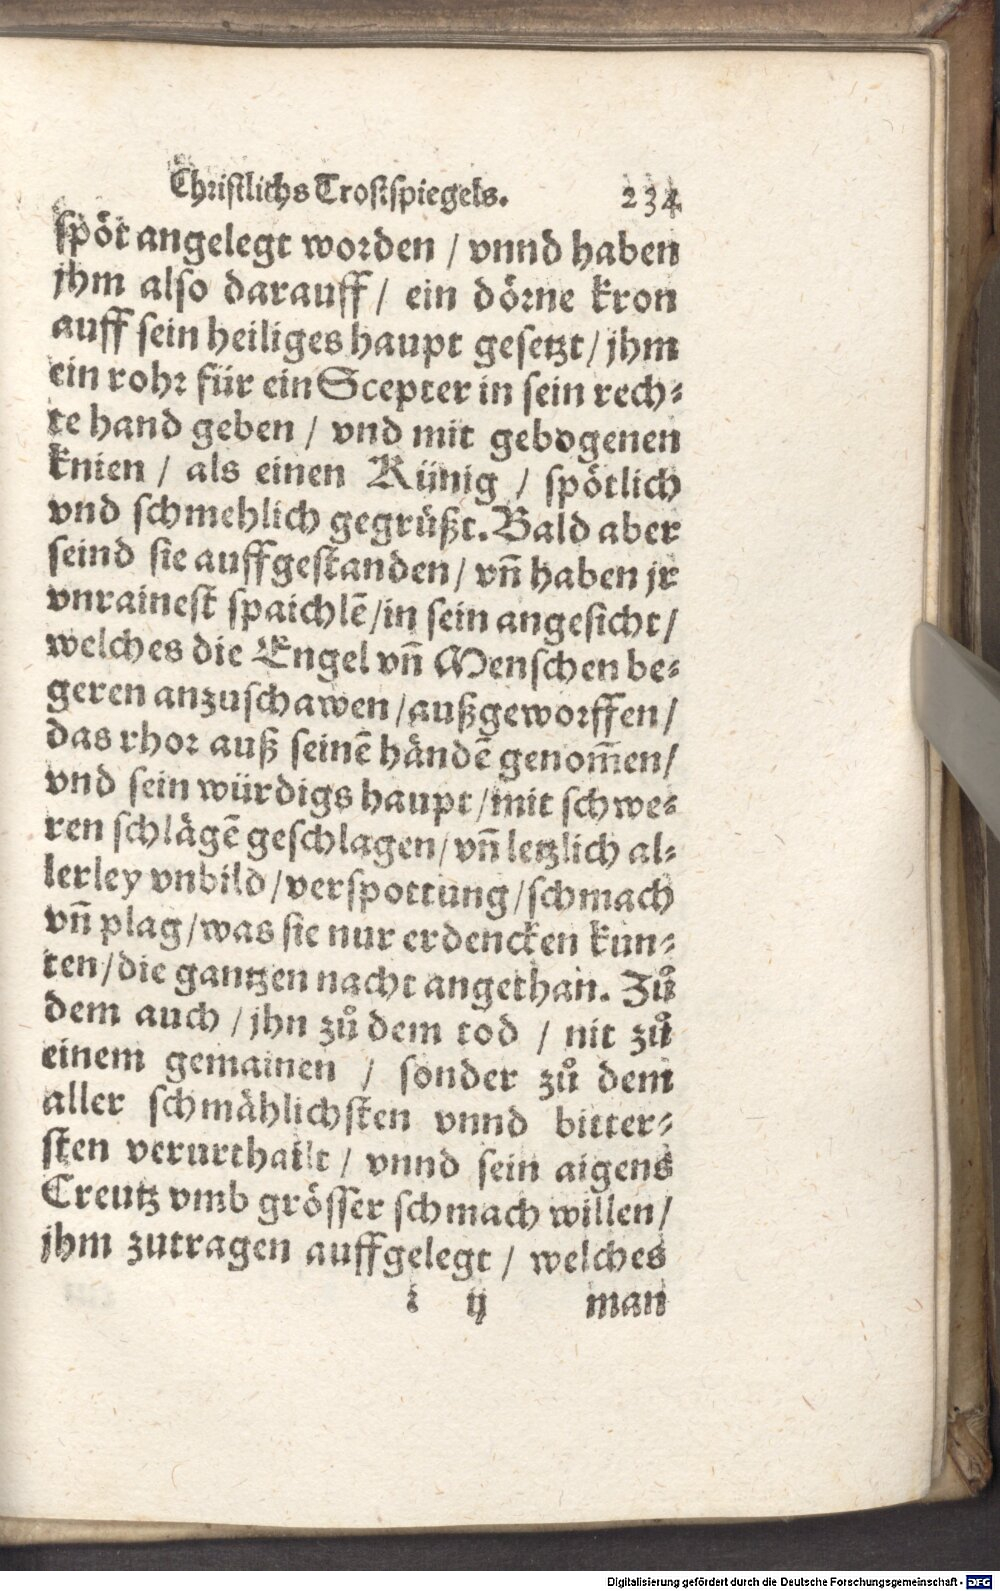 Christlichs Trostspiegels. 234
spöt angelegt worden / vnnd haben
jhm also darauff / ein dörne kron
auff sein heiliges haupt gesetzt / jhm
ein rohr für ein Scepter in sein rech⸗
te hand geben / vnd mit gebogenen
knien / als einen Künig / spötlich
vnd schmehlich gegrüßt. Bald aber
seind sie auffgestanden / vn̄ haben jr
vnrainest spaichlē / in sein angesicht /
welches die Engel vn̄ Menschen be⸗
geren anzuschawen / außgeworffen /
das rhor auß seinē händē genom̄en /
vnd sein würdigs haupt / mit schwe⸗
ren schlägē geschlagen / vn̄ letzlich al⸗
lerley vnbild / verspottung / schmach
vn̄ plag / was sie nur erdencken kun⸗
ten / die gantzen nacht angethan. Zů
dem auch / jhn zů dem tod / nit zů
einem gemainen / sonder zů dem
aller schmählichsten vnnd bitter⸗
sten verurthailt / vnnd sein aigens
Creutz vmb grösser schmach willen /
jhm zutragen auffgelegt / welches
ij man
Digitalisierung gefördert durch die Deutsche Forschungsgemeinschaft - DFG